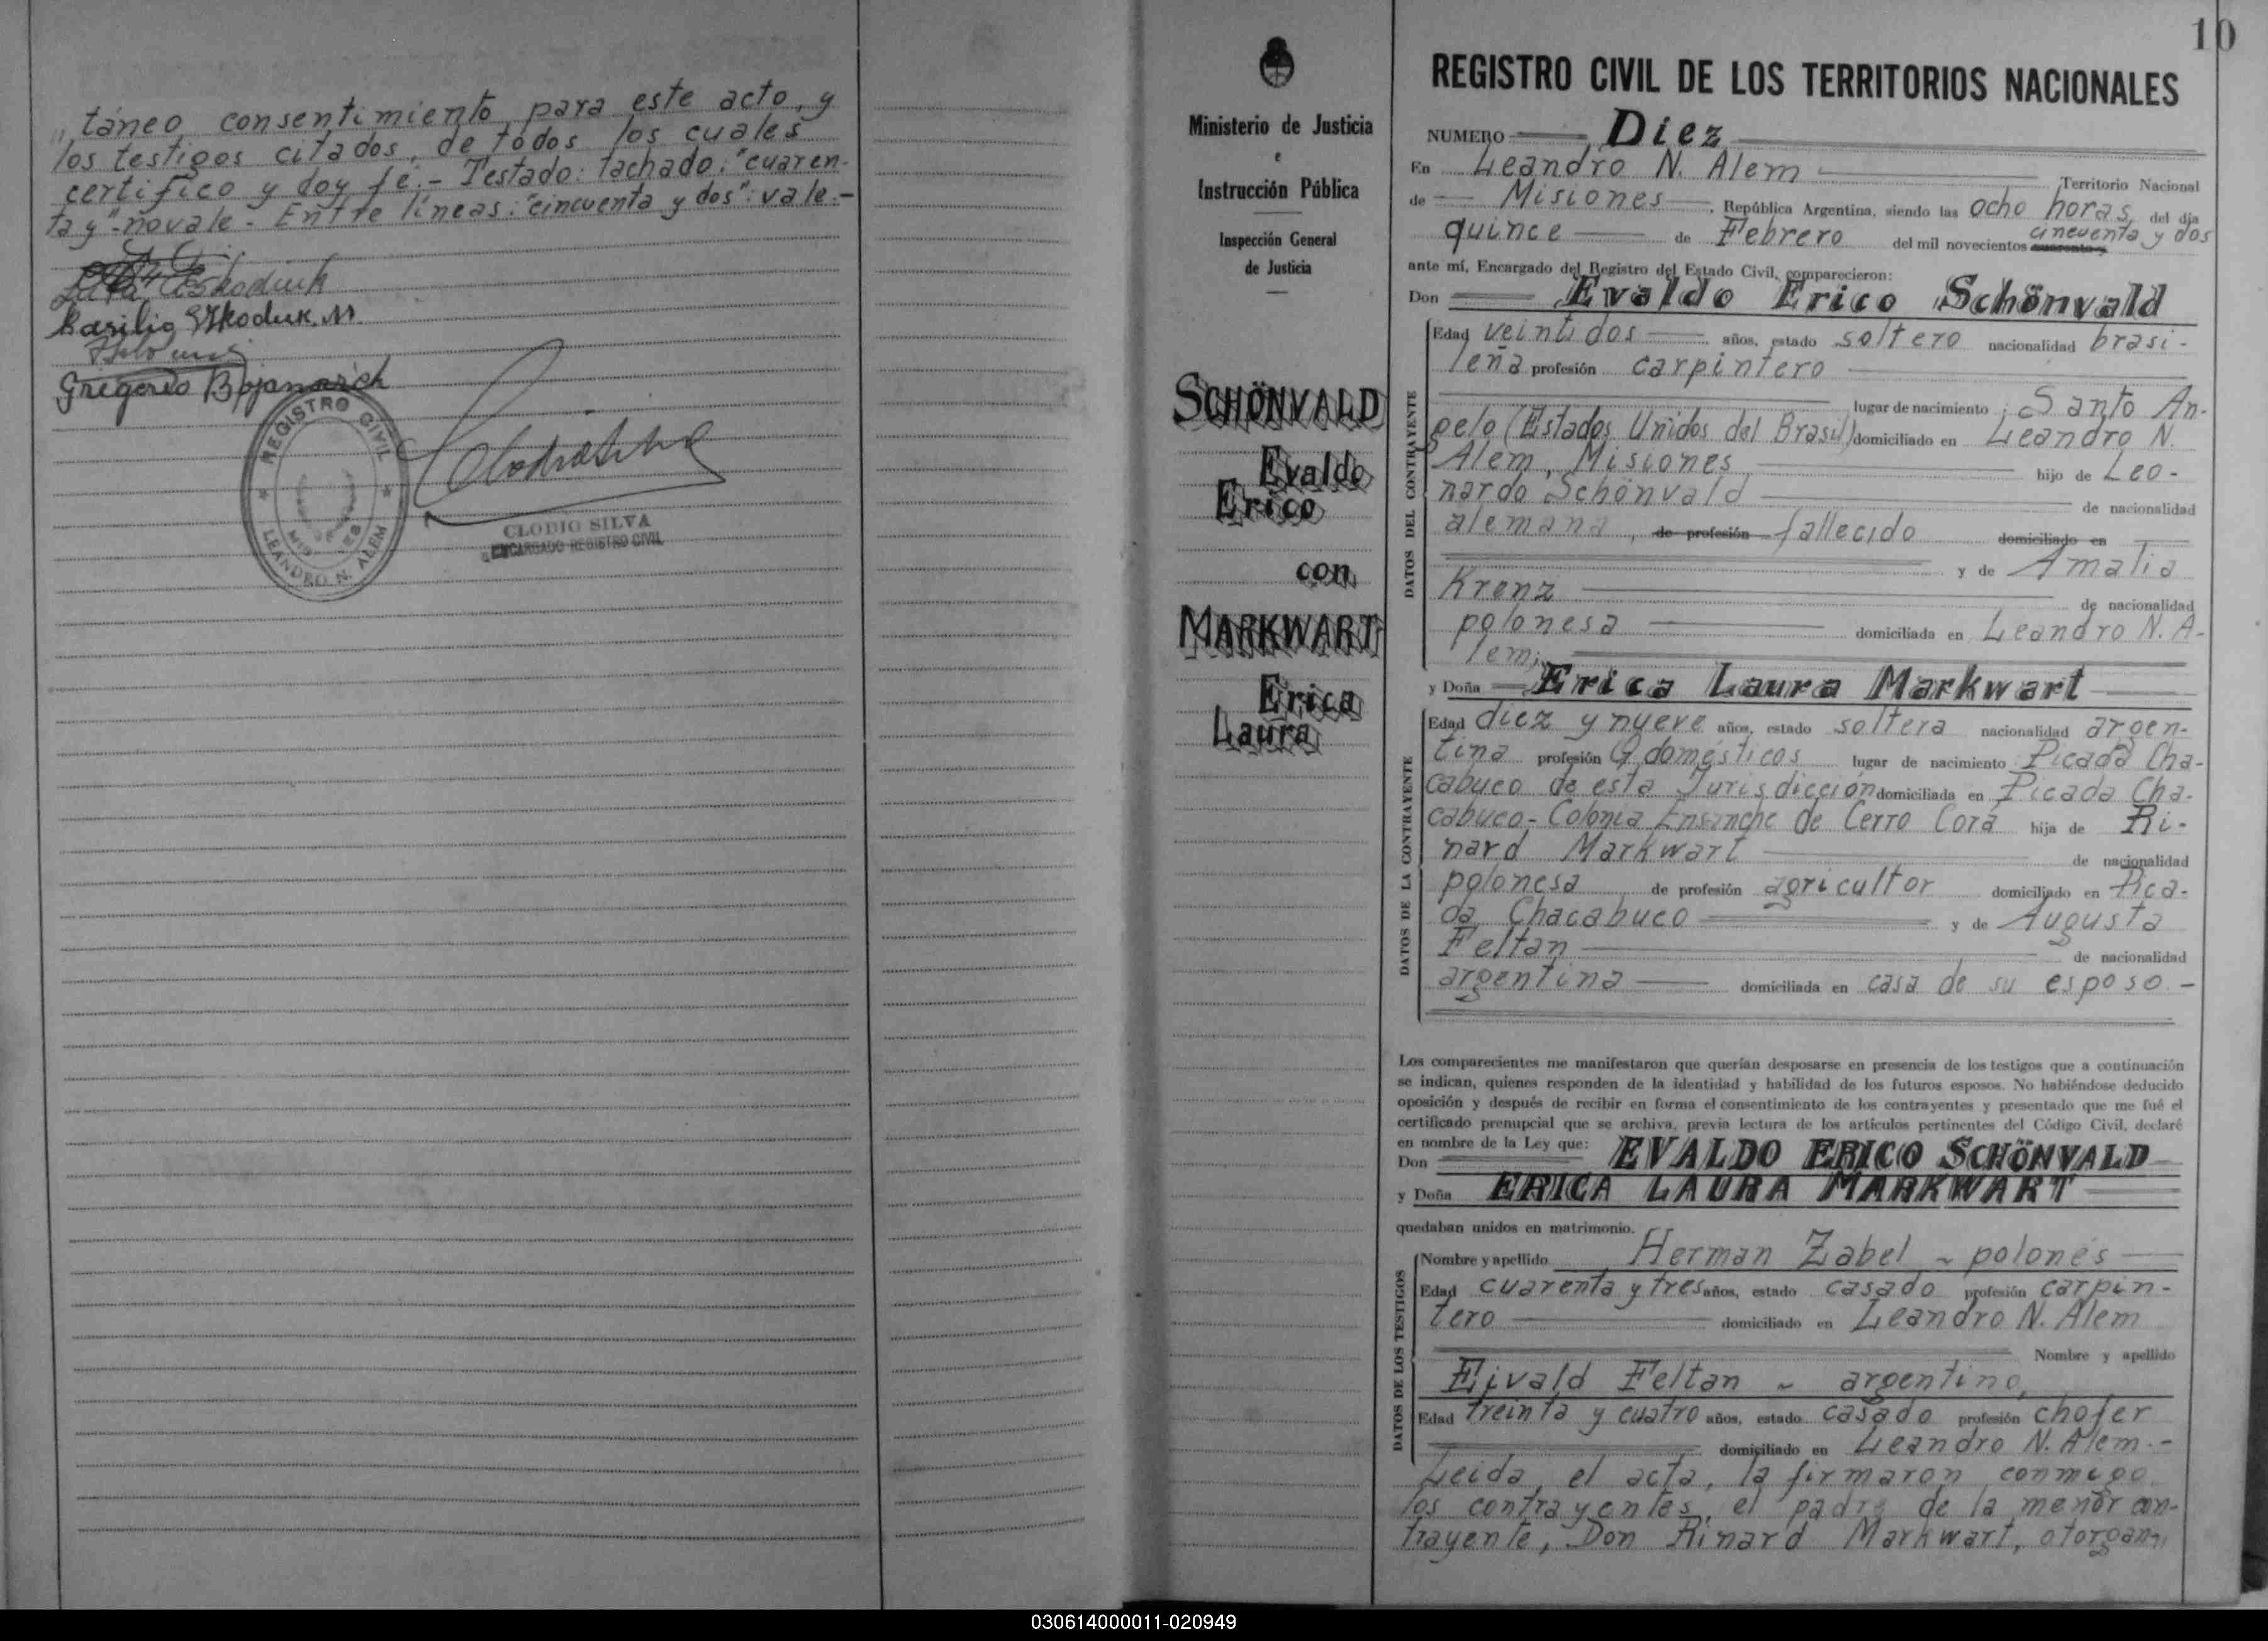 táneo consentimiento para este acto, y
los testigos citados, de todos los cuales
certifico y doy fé.- Testado: tachado: "cuaren-
ta y"-no vale- Entre líneas: "cincuenta y dos": vale.-
Basilio
Gregorio
REGISTRO CIVIL
LEANDRO N. ALEM
CLODIO SILVA
ENCARGADO REGISTRO CIVIL
Ministerio de Justicia
e
Instrucción Pública
Inspección General
de Justicia
SCHÖNVALD
Evaldo
Erico
con
MARKWART
Erica
Laura
10
REGISTRO CIVIL DE LOS TERRITORIOS NACIONALES
NUMERO Diez
En Leandro N. Alem Territorio Nacional
de Misiones, República Argentina, siendo las ocho horas del día
quince de Febrero del mil novecientos cincuenta y dos
ante mí, Encargado del Registro del Estado Civil, comparecieron:
Don Evaldo Erico Schönvald
DATOS DEL CONTRAYENTE
Edad veintidos años, estado soltero nacionalidad brasi-
leña profesión carpintero
lugar de nacimiento Santo An-
gelo (Estados Unidos del Brasil) domiciliado en Leandro N.
Alem, Misiones hijo de Leo-
nardo Schönvald de nacionalidad
alemana, de profesión fallecido domiciliado en
y de Amalia
Krenz de nacionalidad
polonesa domiciliada en Leandro N. A-
lem;
y Doña Erica Laura Markwart
DATOS DE LA CONTRAYENTE
Edad diez y nueve años, estado soltera nacionalidad argen-
tina profesión Q. domésticos lugar de nacimiento Picada Cha-
cabuco de esta Jurisdicción domiciliada en Picada Cha-
cabuco-Colonia Ensanche de Cerro Corá hija de Ri-
nard Markwart de nacionalidad
polonesa de profesión agricultor domiciliado en Pica-
da Chacabuco y de Augusta
Feltan de nacionalidad
argentina domiciliada en casa de su esposo.-
Los comparecientes me manifestaron que querían desposarse en presencia de los testigos que a continuación
se indican, quienes responden de la identidad y habilidad de los futuros esposos. No habiéndose deducido
oposición y después de recibir en forma el consentimiento de los contrayentes y presentado que me fué el
certificado prenupcial que se archiva, previa lectura de los artículos pertinentes del Código Civil, declaré
en nombre de la Ley que:
Don EVALDO ERICO SCHÖNVALD
y Doña ERICA LAURA MARKWART
quedaban unidos en matrimonio.
DATOS DE LOS TESTIGOS
Nombre y apellido Herman Zabel - polonés
Edad cuarenta y tres años, estado casado profesión carpin-
tero domiciliado en Leandro N. Alem
Nombre y apellido
Eivald Feltan - argentino,
Edad treinta y cuatro años, estado casado profesión chofer
domiciliado en Leandro N. Alem.-
Leída el acta, la firmaron conmigo
los contrayentes, el padre de la menor con-
trayente, Don Rinard Markwart, otorgan-
030614000011-020949